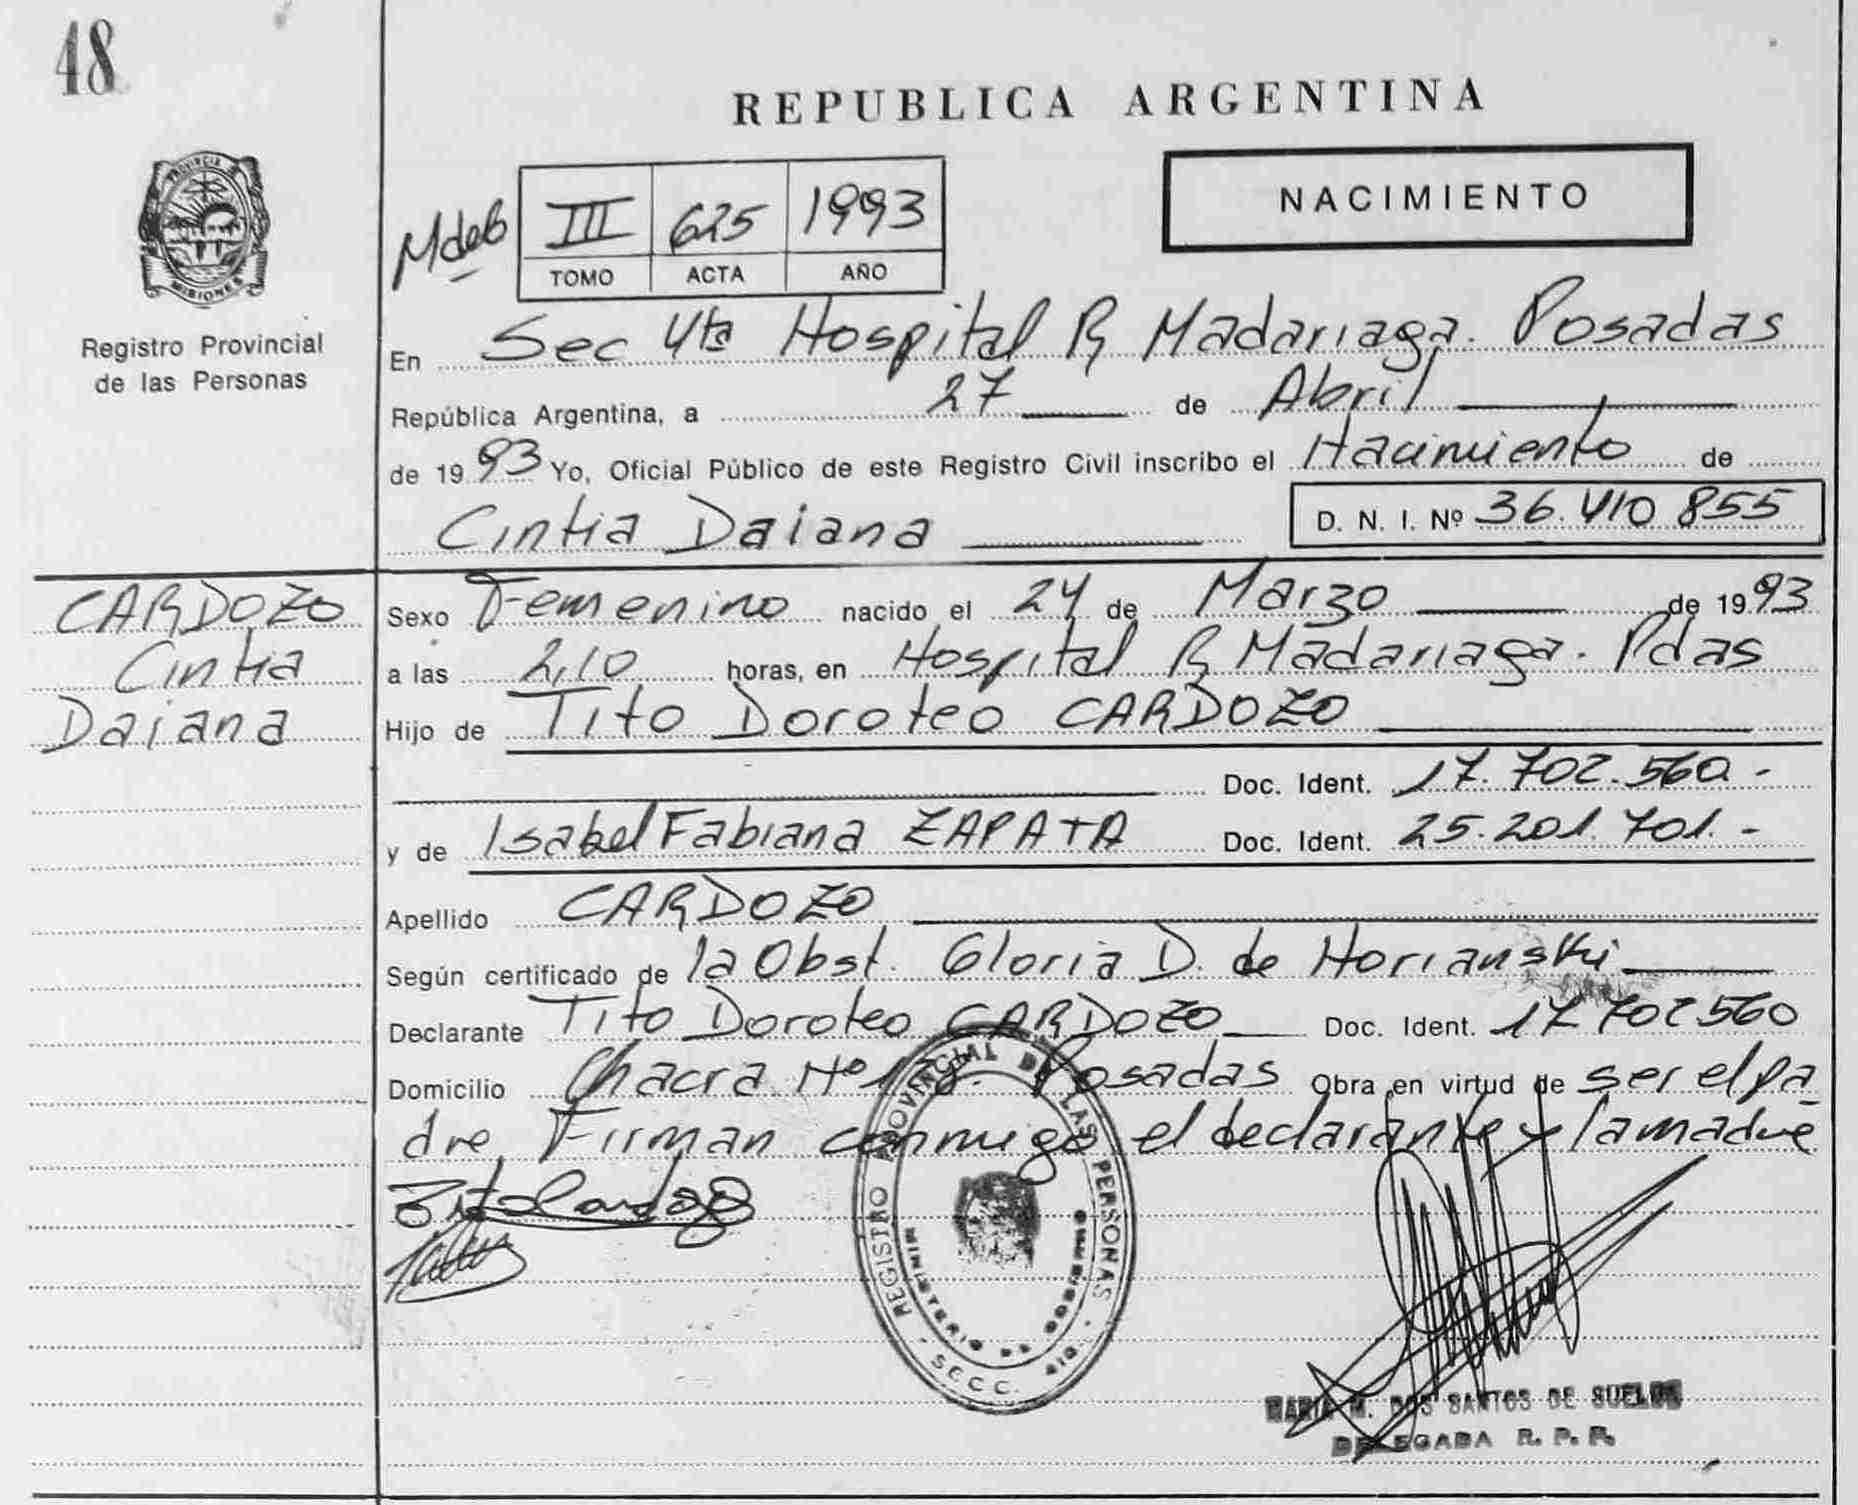 48
REPUBLICA ARGENTINA
PROVINCIA
MISIONES
Registro Provincial
de las Personas
III 625 1993
TOMO ACTA AÑO
NACIMIENTO
En Sec 4ta Hospital R Madariaga. Posadas
República Argentina, a 27 de Abril
de 1993 Yo, Oficial Público de este Registro Civil inscribo el Nacimiento de
Cintia Daiana
D. N. I. Nº 36.410 855
CARDOZO
Cintia
Daiana
Sexo Femenino nacido el 24 de Marzo de 1993
a las 2,10 horas, en Hospital R Madariaga. Pdas
Hijo de Tito Doroteo CARDOZO
Doc. Ident. 17.702.560.-
y de Isabel Fabiana ZAPATA Doc. Ident. 25.201.701.-
Apellido CARDOZO
Según certificado de la Obst. Gloria D. de Horianski
Declarante Tito Doroteo CARDOZO Doc. Ident. 17 702 560
Domicilio Chacra Nº Posadas Obra en virtud de ser el pa
dre Firman conmigo el declarante y la madre
Tito Cardozo
REGISTRO PROVINCIAL DE LAS PERSONAS
MINISTERIO DE GOBIERNO
SECC.
MARIA M. DOS SANTOS DE SUELOS
DELEGADA R. P. P.